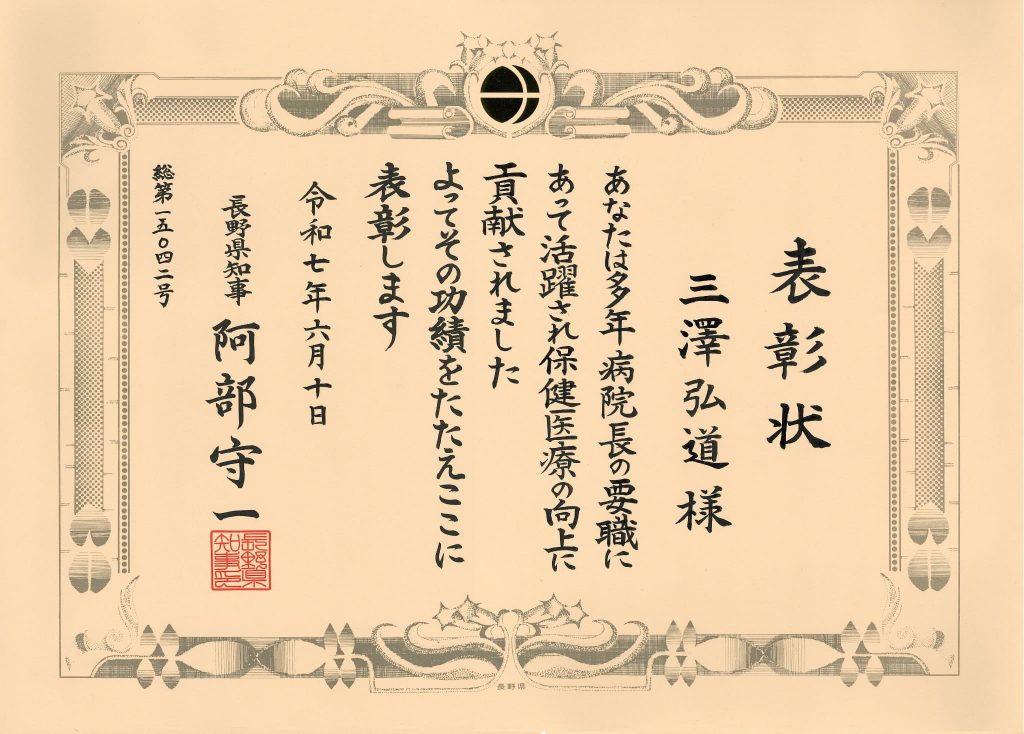 表彰状
三澤弘道様
あなたは多年病院長の要職に
あって活躍され保健医療の向上に
貢献されました
よってその功績をたたえここに
表彰します
令和七年六月十日
長野県知事 阿部守一
長野県知事印
総第一五〇四二号
長野県